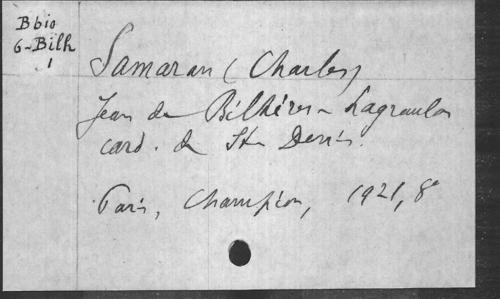 Bbio
6-Bilh
1
Samaran (Charles)
Jean de Bilhères-Lagraulas
card. de St Denis.
Paris, Champion, 1921, 8°